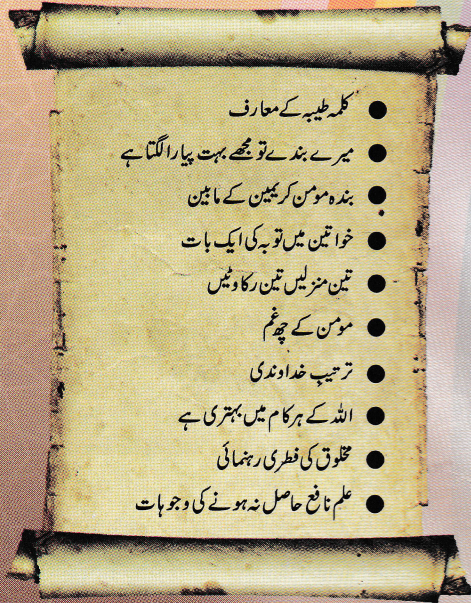 کلمہ طیبہ کے معارف
میرے بندے تو مجھے بہت پیارا لگتا ہے
بندہ مومن کریمین کے مابین
خواتین میں توبہ کی ایک بات
تین منزلیں تین رکاوٹیں
مومن کے چھ غم
ترتیبِ خداوندی
اللہ کے ہر کام میں بہتری ہے
مخلوق کی فطری رہنمائی
علم نافع حاصل نہ ہونے کی وجوہات